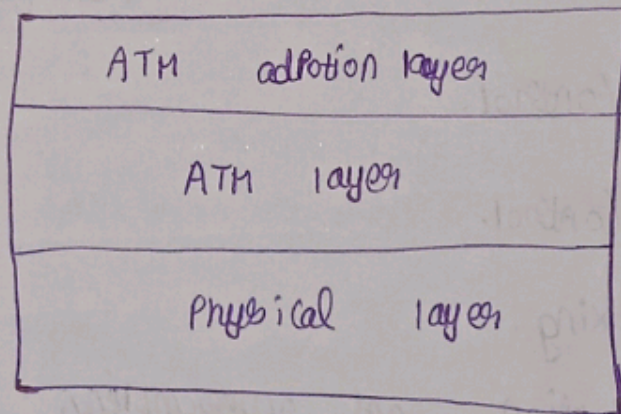 ATM adPotion layer
ATM layer
Physical layer